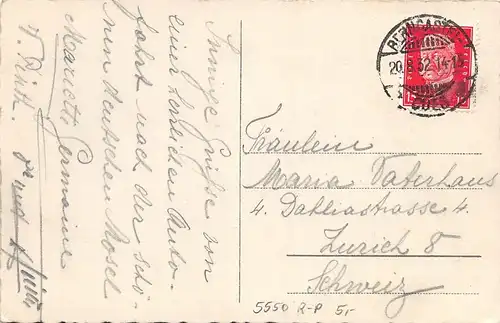 Innige Grüße von
einer herrlichen Auto-
fahrt nach der schö-
nen deutschen Mosel
Marietti Germaine
BERNCASTEL
20.8.32.14-15
CUES
15
Fräulein
Maria Vaterhaus
4. Dahliastrasse 4.
Zürich 8
Schweiz
5550 R-P 5,-